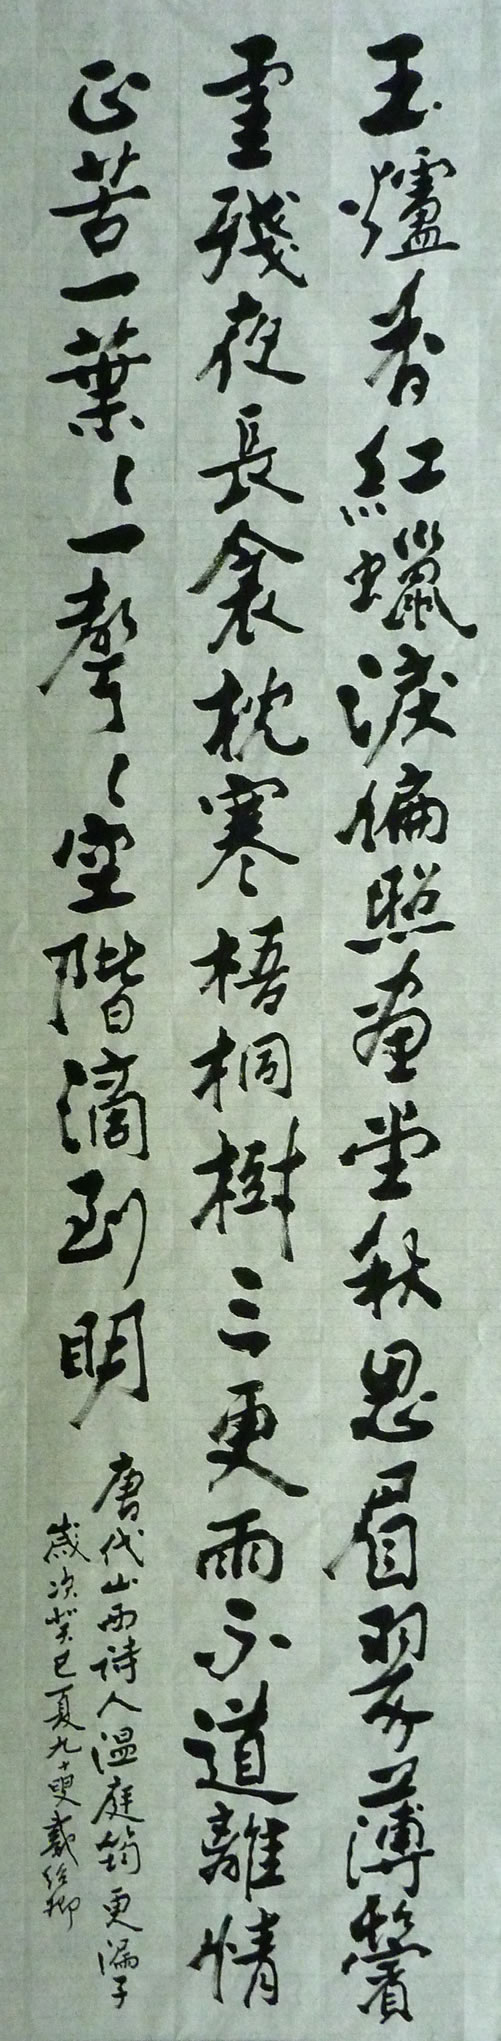 玉爐香紅蠟淚偏照畫堂秋思眉翠薄鬢
雲殘夜長衾枕寒梧桐樹三更雨不道離情
正苦一葉〻一聲〻空階滴到明
唐代山西詩人温庭筠更漏子
歲次癸巳夏九十叟戴